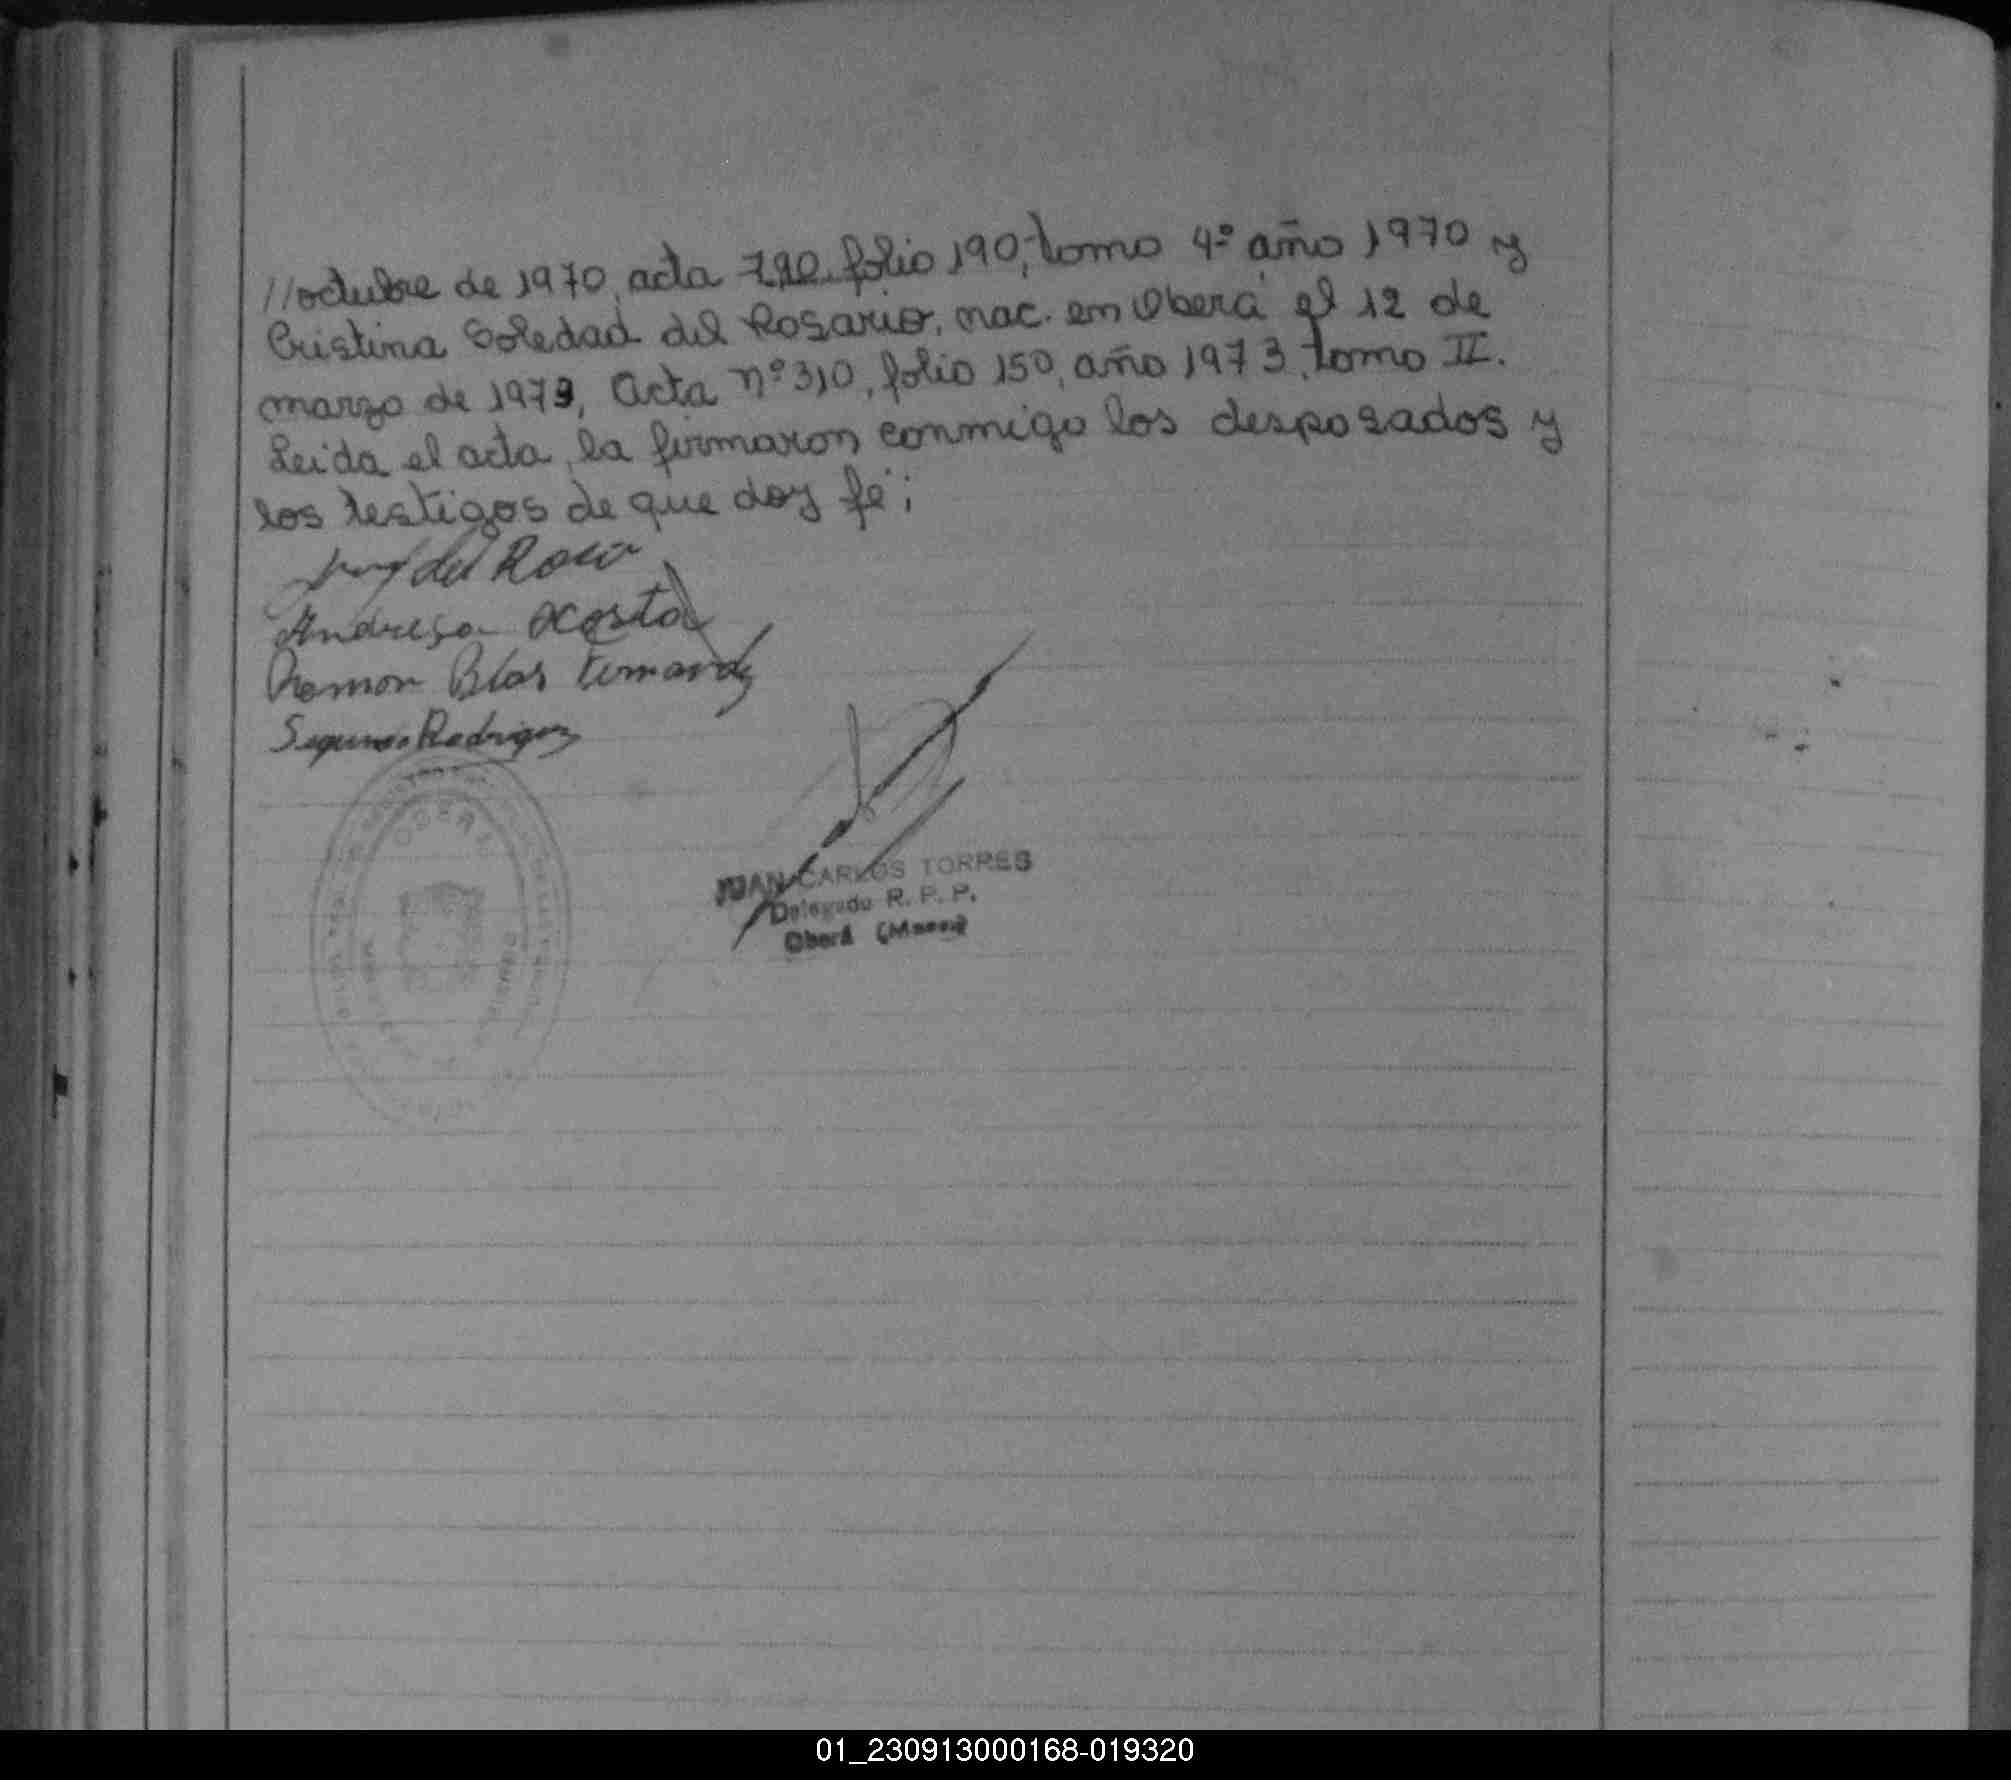 //octubre de 1970, acta 790 folio 190, tomo 4º año 1970 y
Cristina Soledad del Rosario, nac. en Oberá el 12 de
marzo de 1973, Acta nº 310, folio 150, año 1973, tomo II.
Leida el acta, la firmaron conmigo los desposados y
los testigos de que doy fe;
del
Andresa Acosta
Ramon Blas Fernandez
Segundo Rodriguez
OBERA
JUAN CARLOS TORRES
Delegado R. P. P.
Oberá
01_230913000168-019320